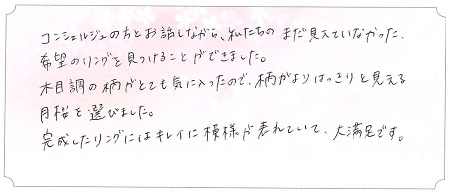 コンシェルジュの方とお話しながら、私たちの まだ見えていなかった、
希望のリングを見つけることができました。
木目調の柄がとても気に入ったので、柄がよりはっきりと見える
月桜を選びました。
完成したリングにはキレイに模様が表れていて、大満足です。